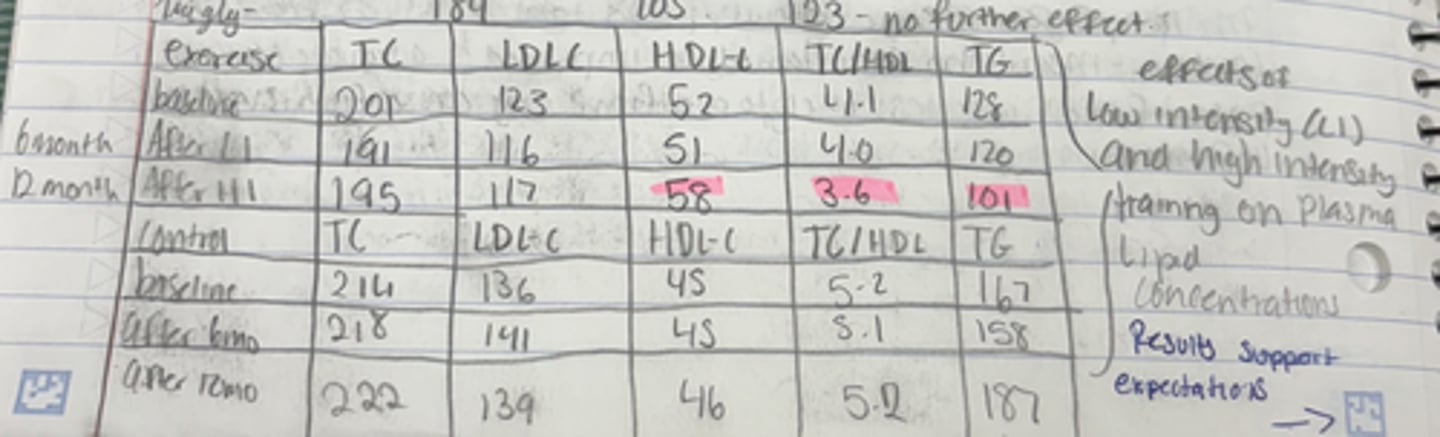 184 105 123 - no further effect.
exercise TC LDLC HDL-C TC/HDL TG
baseline 201 123 52 4.1 128
6 month After LI 191 116 51 4.0 120
12 month After HI 195 117 58 3.6 101
control TC LDL-C HDL-C TC/HDL TG
baseline 214 136 45 5.2 167
after 6mo 218 141 45 5.1 158
after 12mo 222 139 46 5.2 187
effects of
low intensity (LI)
and high intensity
training on plasma
Lipid
concentrations
Results support
expectations